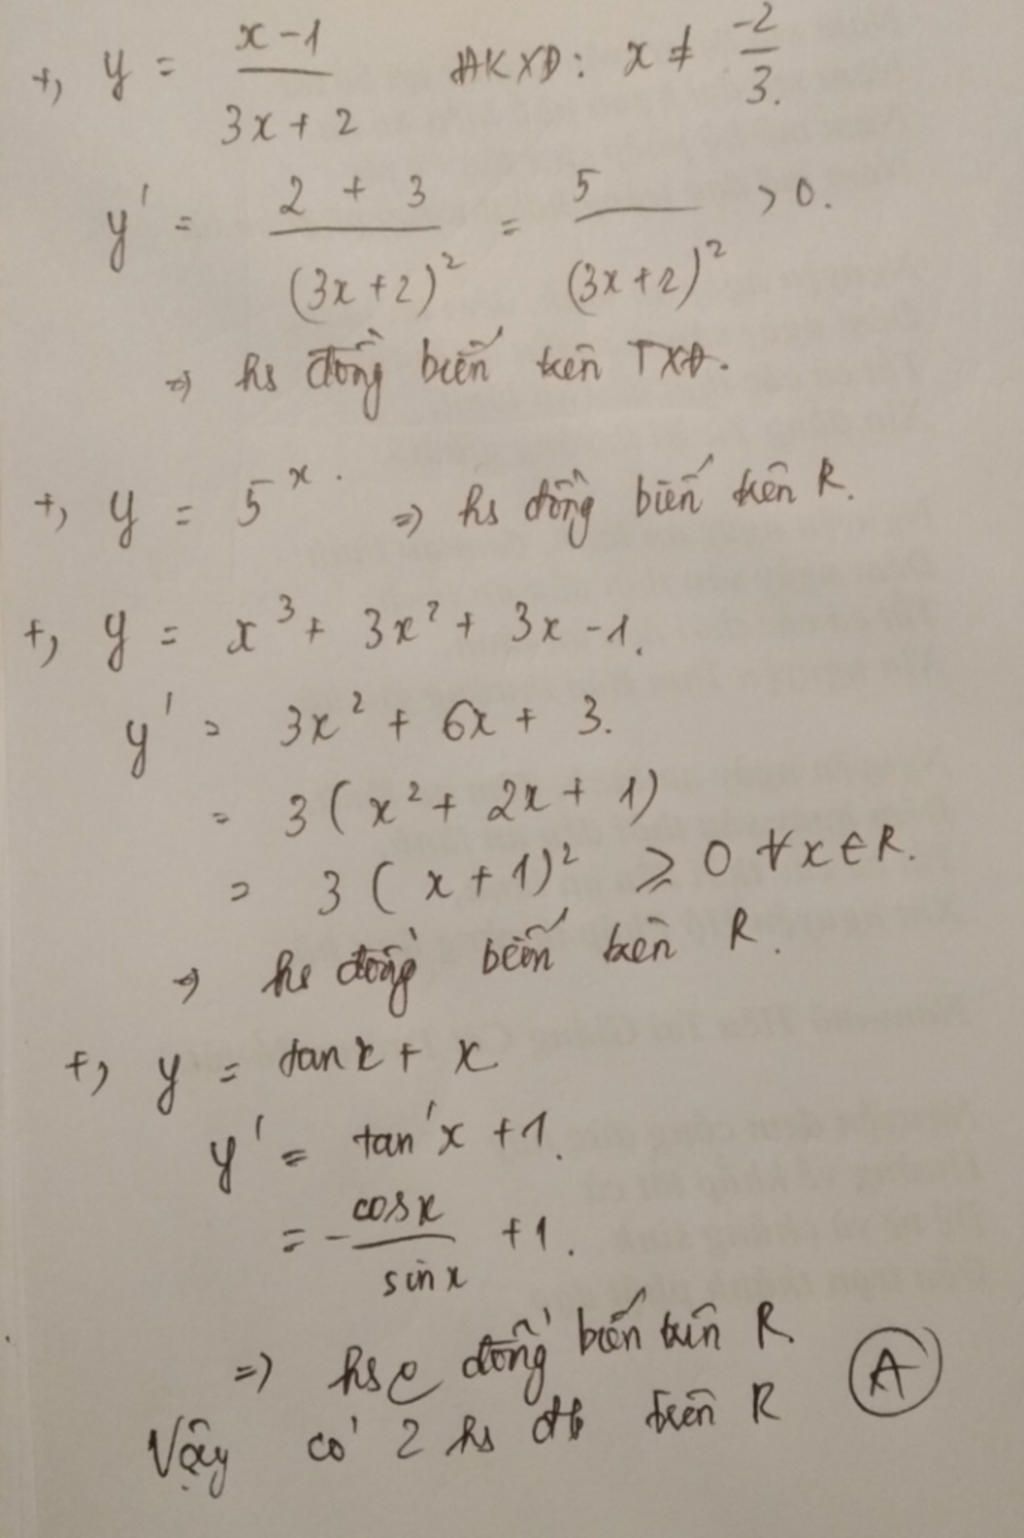 +, y = \frac{x-1}{3x+2} ĐKXĐ: x ≠ \frac{-2}{3}.
y' = \frac{2+3}{(3x+2)^2} = \frac{5}{(3x+2)^2} > 0.
⇒ hs đồng biến trên TXĐ.
+, y = 5^x. ⇒ hs đồng biến trên R.
+, y = x^3 + 3x^2 + 3x - 1.
y' = 3x^2 + 6x + 3.
= 3(x^2 + 2x + 1)
= 3(x+1)^2 ⩾ 0 ∀x∈R.
⇒ hs đồng biến trên R.
+, y = tanx + x
y' = tan'x + 1.
= -\frac{cosx}{sinx} + 1.
⇒ hs đồng biến trên R.
Vậy có 2 hs đb trên R A